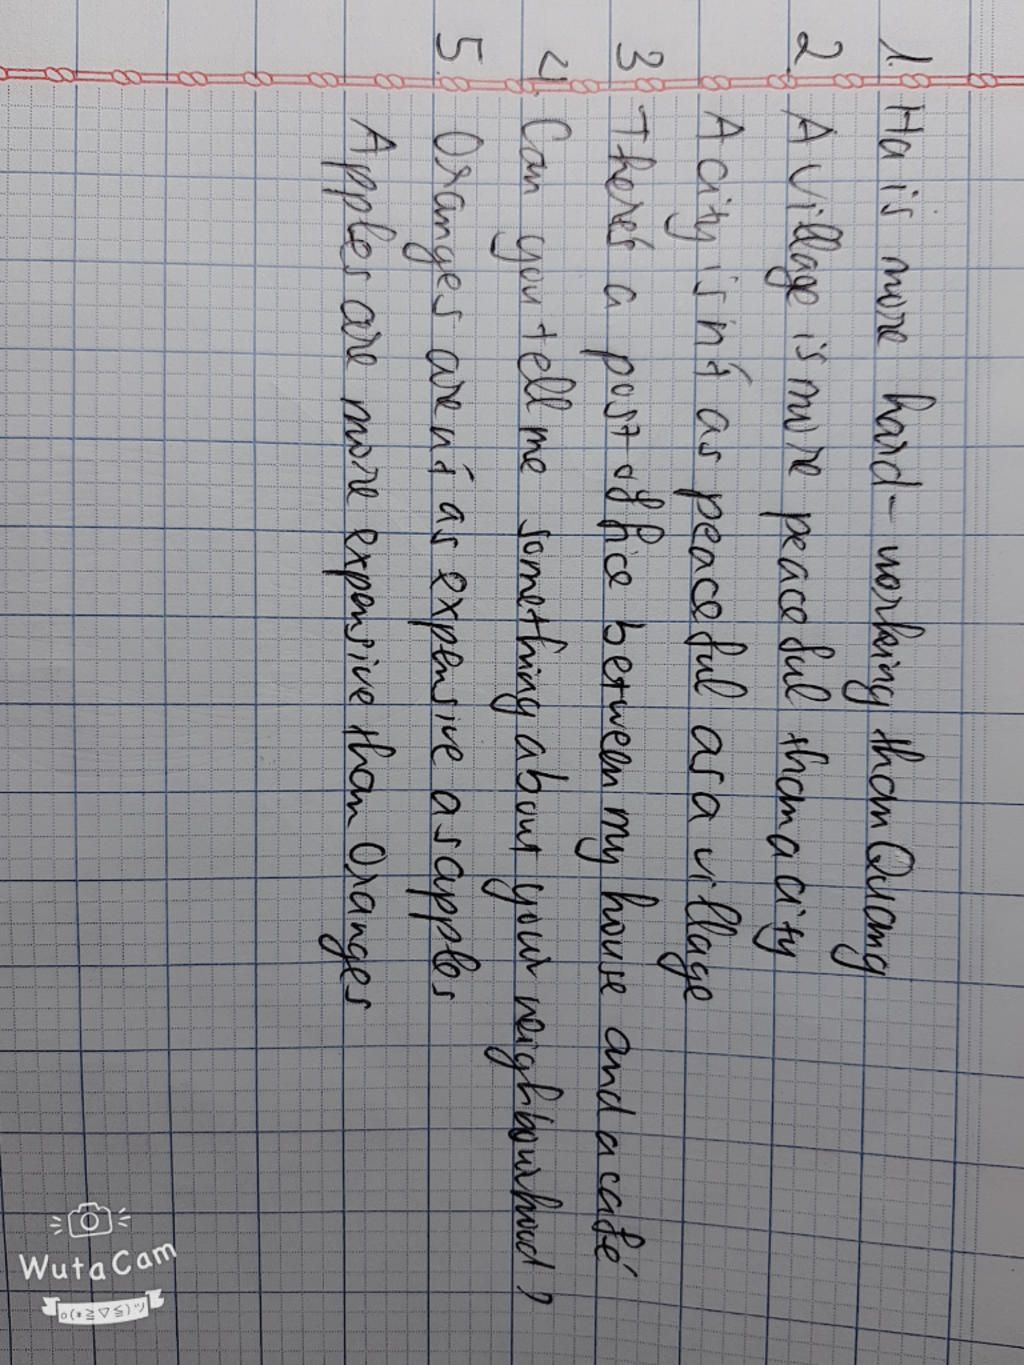 1. Ha is more hard-working than Quang
2. A village is more peaceful than a city
A city isn't as peaceful as a village
3 There's a post office between my house and a café
4. Can you tell me something about your neighbourhood?
5. Oranges aren't as expensive as apples
Apples are more expensive than Oranges
WutaCam
o(*≧▽≦)ツ